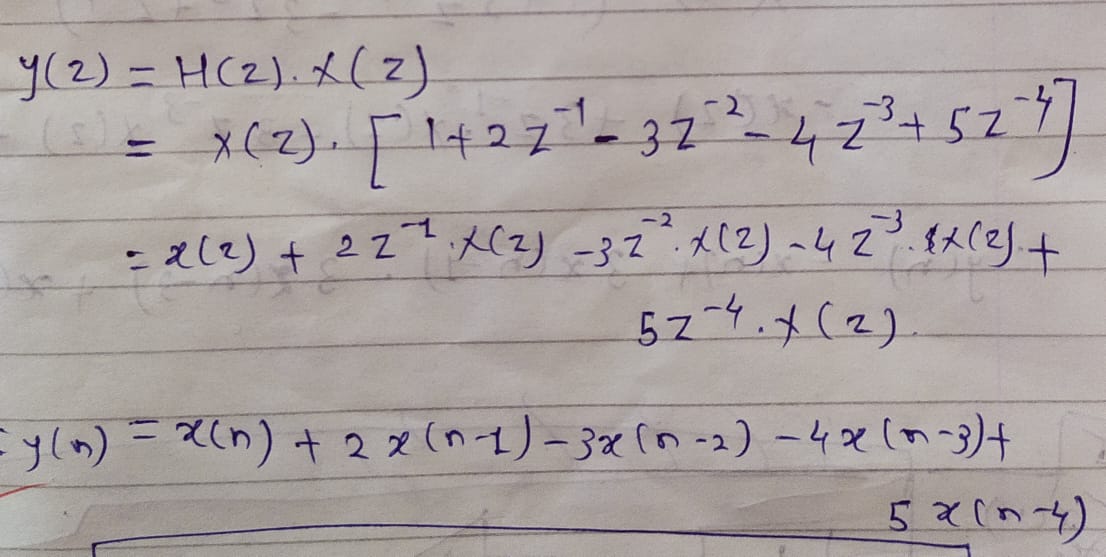 y(z) = H(z). X(z)
= X(z). [1+2z⁻¹ - 3z⁻² - 4z⁻³ + 5z⁻⁴]
= x(z) + 2z⁻¹.X(z) - 3z⁻².X(z) - 4z⁻³.X(z) +
5z⁻⁴.X(z).
y(n) = x(n) + 2x(n-1) - 3x(n-2) - 4x(n-3) +
5x(n-4)